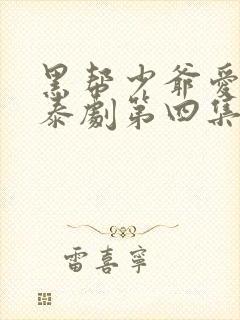 黑帮少爷爱
泰剧第四集
雷喜宁